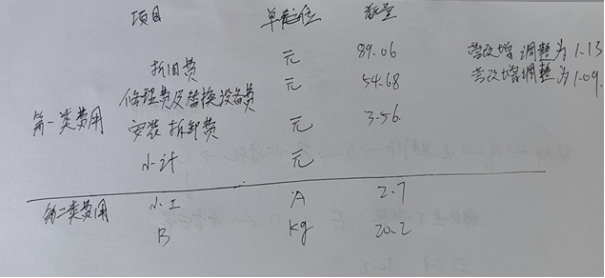 项目 单位 数量
折旧费 元 89.06 营改增调整为1.13
修理费及替换设备费 元 54.68 营改增调整为1.09.
第一类费用 安装拆卸费 元 3.56
小计 元
第二类费用 人工 A 2.7
B kg 20.2